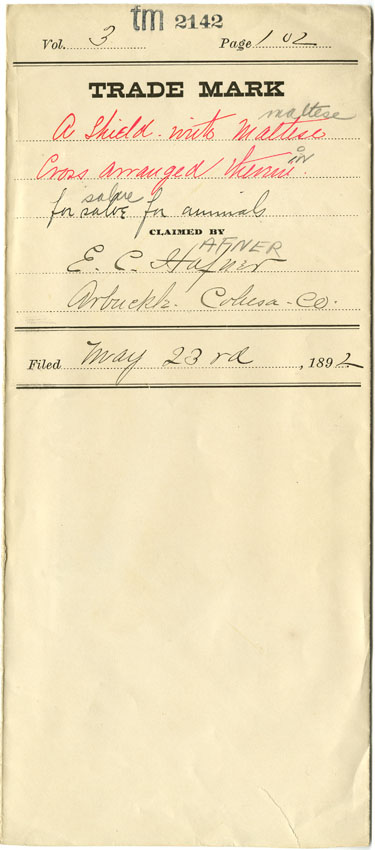 tm 2142
Vol. 3 Page 102
TRADE MARK
maltese
A Shield with Maltese
Cross arranged therein.
in
salve
for salve for animals
CLAIMED BY
AFNER
E. C. Hafner
Arbuckle. Colusa-Co.
Filed May 23rd, 1892